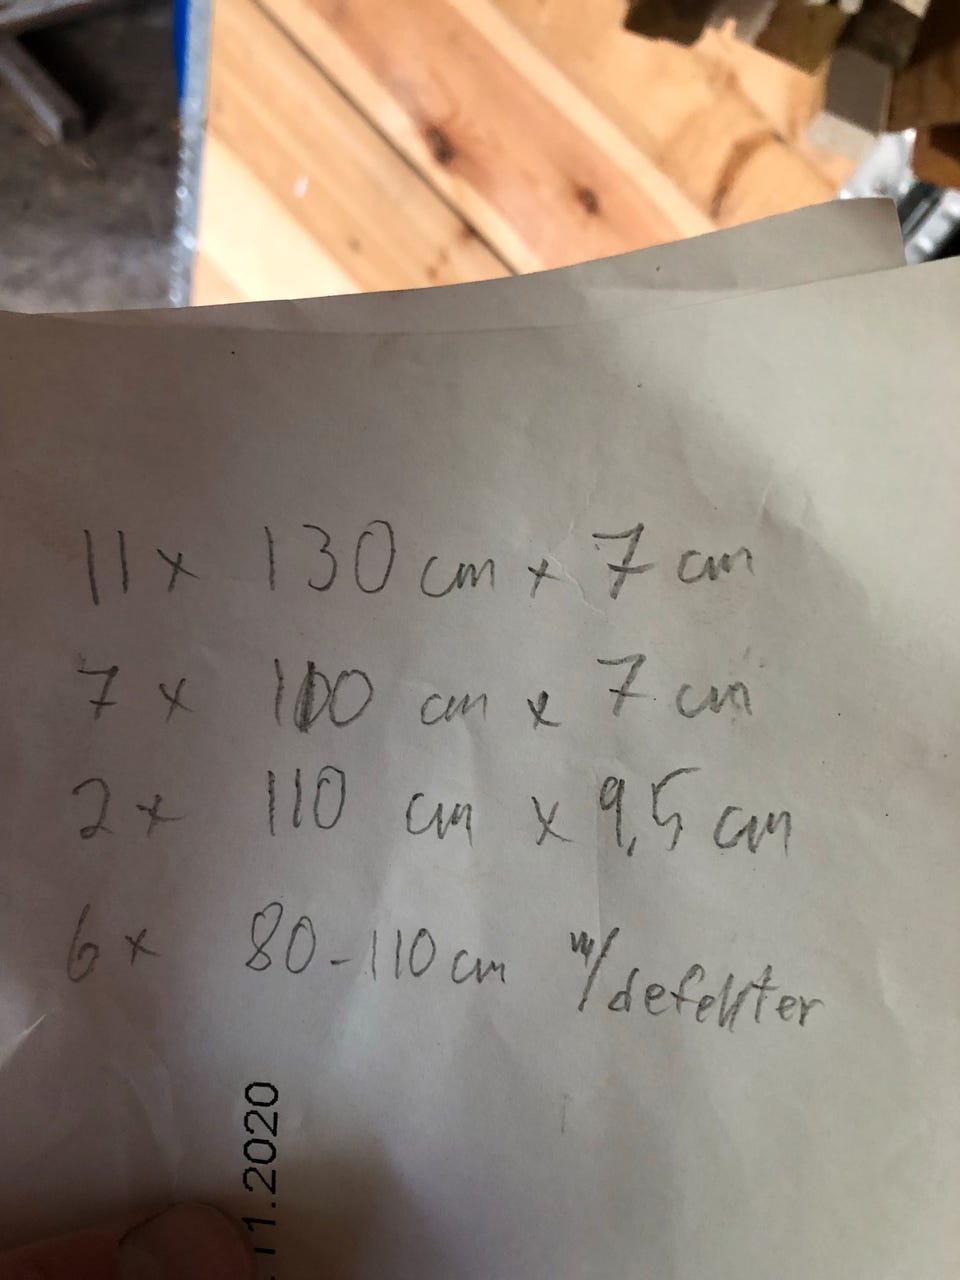 11 x 130 cm x 7 cm
7 x 100 cm x 7 cm
2 x 110 cm x 9,5 cm
6 x 80-110 cm m/defekter
11.2020